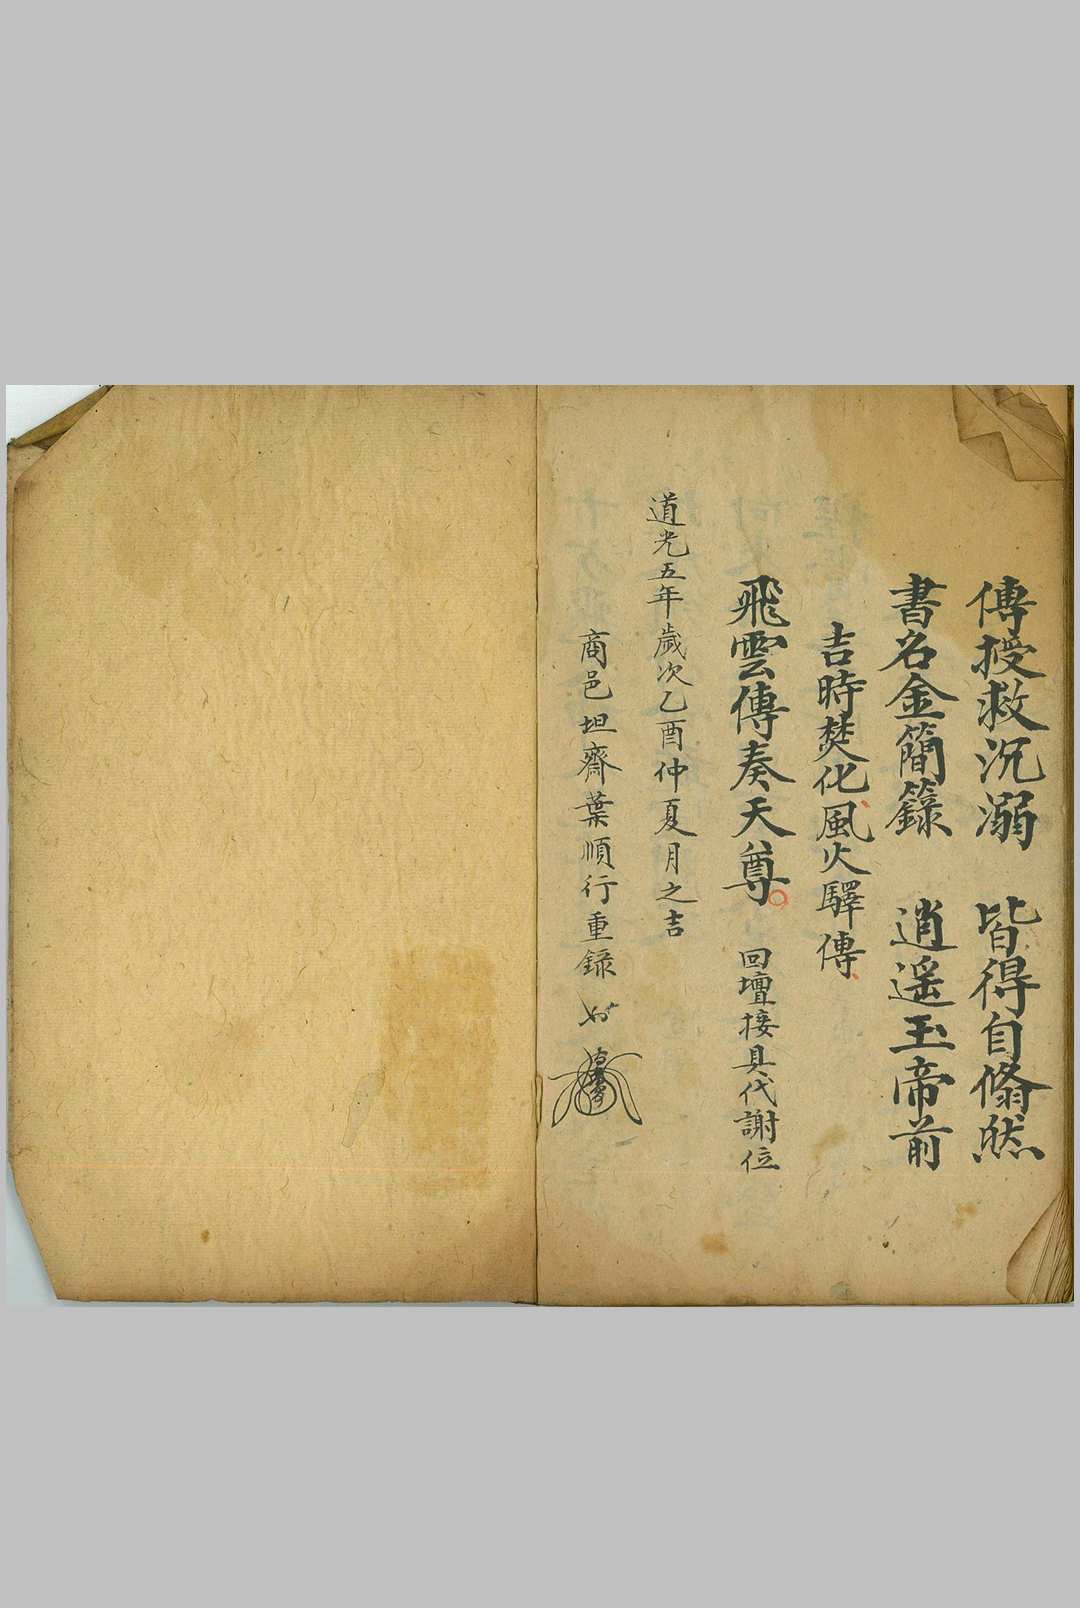 傳授救沉溺　皆得自翛然
書名金簡籙　逍遥玉帝前
吉時焚化風火驛傳
飛雲傳奏天尊　回壇接具代謝位
道光五年歲次乙酉仲夏月之吉
商邑坦齋葉順行重録